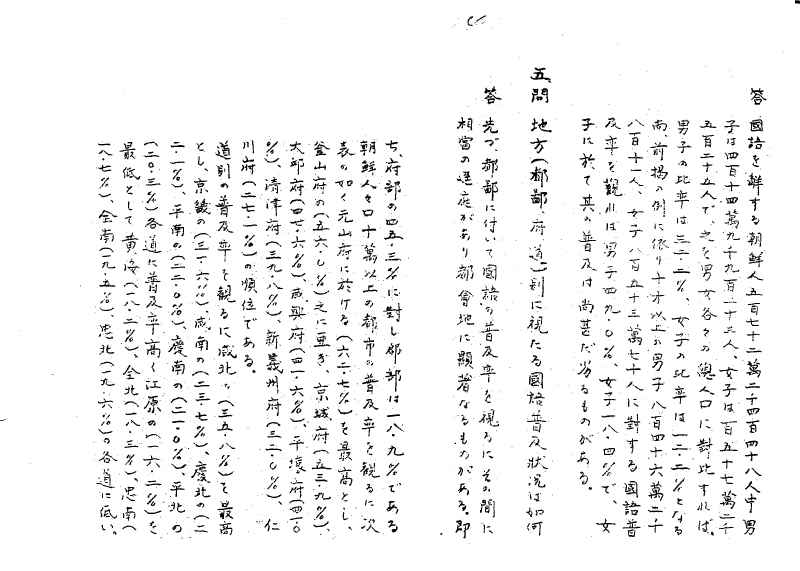 答 國語を解する朝鮮人五百七十二萬二千四百四十八人中男
子は四百十四萬九千九百二十三人、女子は百五十七萬二千
五百二十五人で、之を男女各々の總人口に對比すれば、
男子の比率は三二・二%、女子の比率は一二・二%となる
尚前揭の例に依り十才以上の男子八百四十六萬二千
八百十一人、女子八百五十三萬七十八に對する國語普
及率を觀れば男子四九・〇%、女子一八・四%で、女
子に於て其の普及は尚甚だ劣るものがある。
五、問 地方(都鄙、府、道)別に視たる國語普及狀況は如何
答 先づ、都鄙に付いて國語の普及率を視るにその間に
相當の逕庭があり都會地に顯著なるものがある。卽
ち、府部の四五・三%に對し郡部は一八・九%である
朝鮮人々口十萬以上の都市の普及率を觀るに次
表の如く元山府に於ける(六二・七%)を最高とし、
釜山府の(五六・〇%)之に亞ぎ、京城府(五三・九%)、
大邱府(四七・六%)、咸興府(四一・六%)、平壤府(四一・〇
%)、淸津府(三九・八%)、新義州府(三二・〇%)、仁
川府(二七・一%)の順位である。
道別の普及率を觀るに咸北の(三五・八%)を最高
とし、京畿の(三一・六%)、咸南の(二三・七%)、慶北の(二
二・一%)、平南の(二二・〇%)、慶南の(二一・〇%)、平北の
(二〇・三%)各道に普及率高く江原の(一六・二%)を
最低として黃海(一八・二%)、全北(一八・三%)、忠南(
一八・七%)、全南(一九・五%)、忠北(一九・六%)の各道に低い。